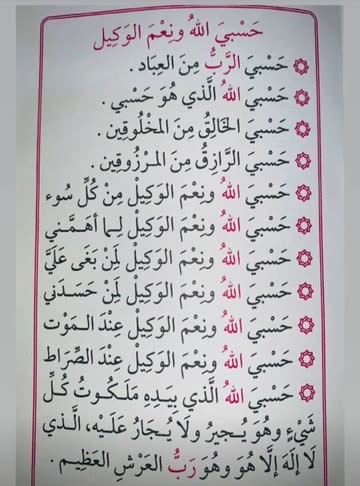 حَسْبِيَ اللهُ ونِعْمَ الوَكِيل
حَسْبِيَ الرَّبُّ مِنَ العِبَاد .
حَسْبِيَ اللهُ الَّذي هُوَ حَسْبي .
حَسْبِيَ الخَالِقُ مِنَ المَخْلُوقِين .
حَسْبِيَ الرَّازِقُ مِنَ المَرْزُوقِين .
حَسْبِيَ اللهُ ونِعْمَ الوَكِيلْ مِنْ كُلِّ سُوء
حَسْبِيَ اللهُ ونِعْمَ الوَكِيلْ لِمـا أهَمَّـني
حَسْبِيَ اللهُ ونِعْمَ الوَكِيلْ لِمَنْ بَغَى عَلَيَّ
حَسْبِيَ اللهُ ونِعْمَ الوَكِيلْ لِمَنْ حَسَدَني
حَسْبِيَ اللهُ ونِعْمَ الوَكِيلْ عِنْدَ المَوْت
حَسْبِيَ اللهُ ونِعْمَ الوَكِيلْ عِنْدَ الصِّرَاط
حَسْبِيَ اللهُ الَّذي بِيَدِهِ مَلَكُوتُ كُـلِّ
شَيْءٍ وهُوَ يُجيرُ ولَا يُجَارُ عَلَيْه، الَّـذي
لَا إلَهَ إلَّا هُوَ وهُوَ رَبُّ العَرْشِ العَظِيم .